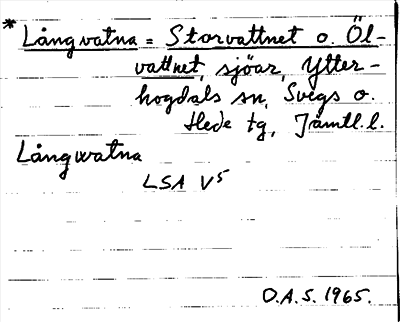 *Långvatna = Storvattnet o. Öl-
vattnet, sjöar, Ytter-
hogdals sn, Svegs o.
Hede tg, Jämtl. l.
Långwatna
LSA V5
O.A.S. 1965.